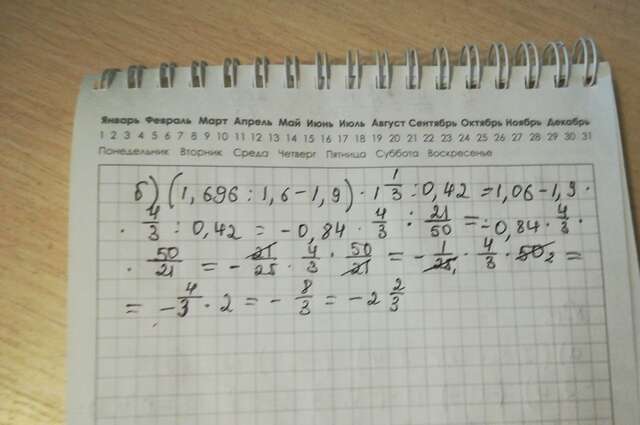 Январь Февраль Март Апрель Май Июнь Июль Август Сентябрь Октябрь Ноябрь Декабрь
1 2 3 4 5 6 7 8 9 10 11 12 13 14 15 16 17 18 19 20 21 22 23 24 25 26 27 28 29 30 31
Понедельник Вторник Среда Четверг Пятница Суббота Воскресенье
б) (1,696 : 1,6 - 1,9) · 1 1/3 : 0,42 = 1,06 - 1,9 ·
· 4/3 : 0,42 = -0,84 · 4/3 : 21/50 = -0,84 · 4/3 ·
· 50/21 = - 21/25 · 4/3 · 50/21 = - 1/25, · 4/3 · 50 2 =
= - 4/3 · 2 = - 8/3 = -2 2/3